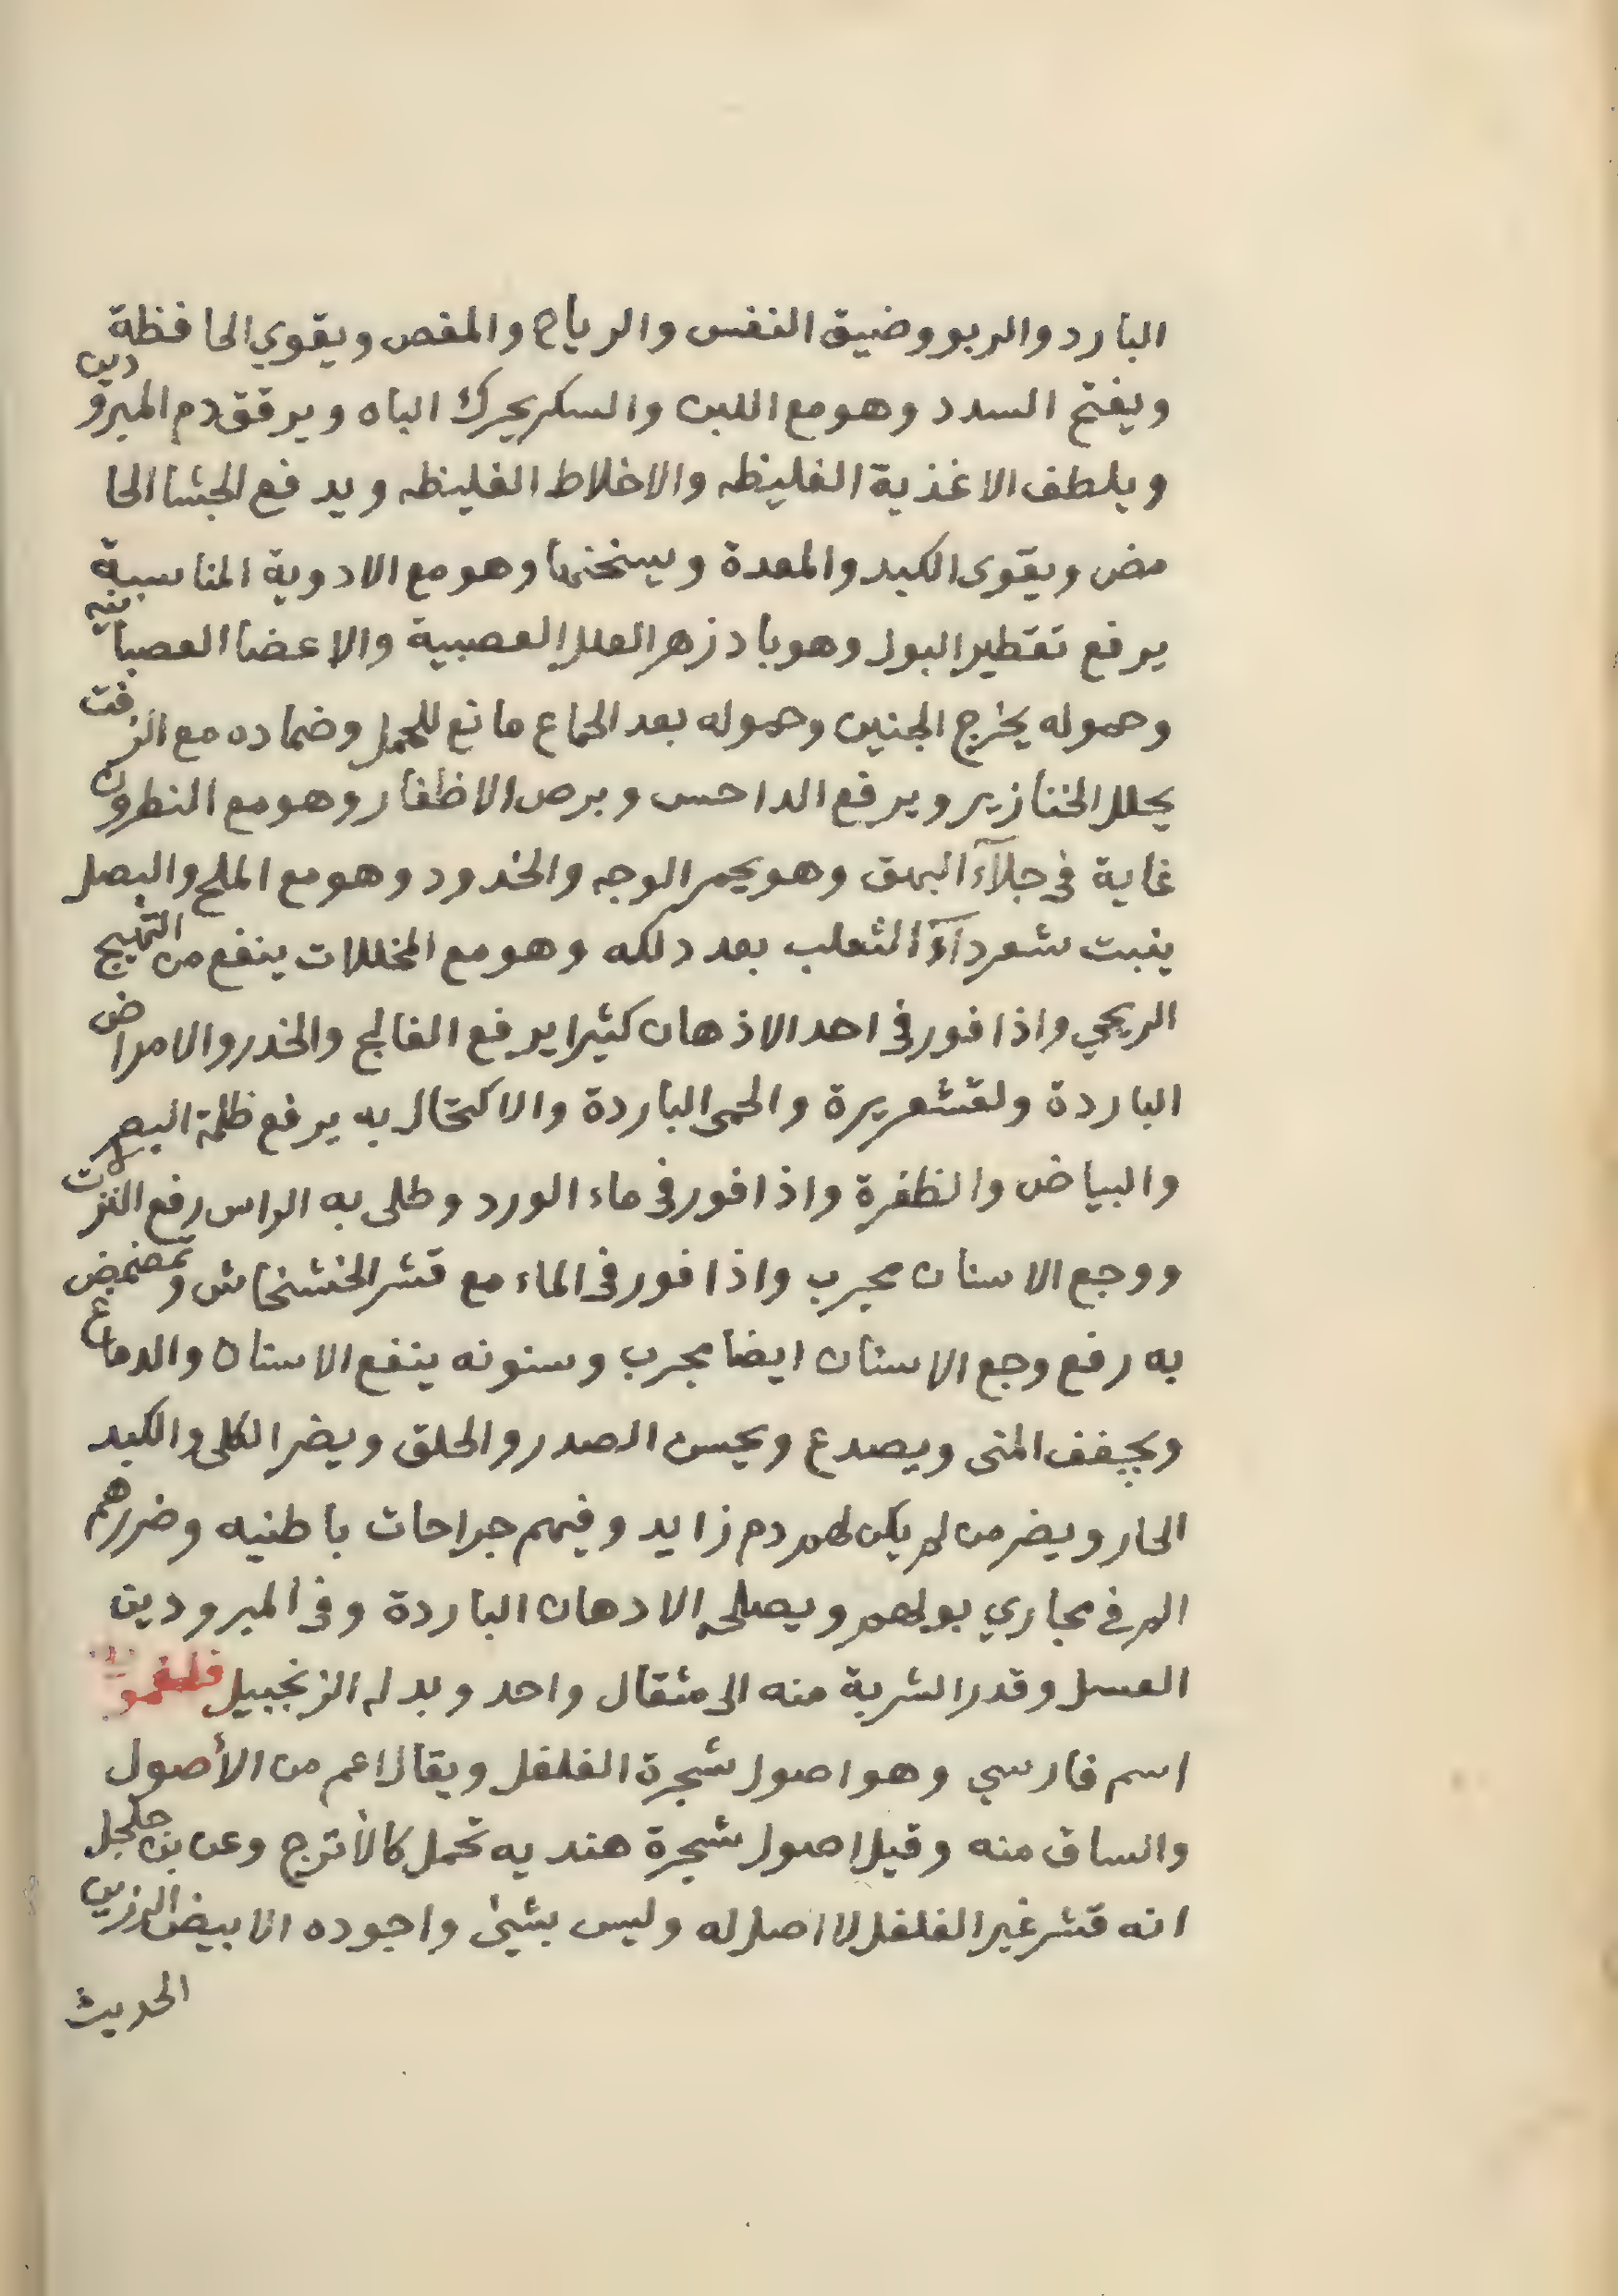 البارد والربو وضيق النفس والرياح والمغص ويقوي الحافظة
ويفتح السدد وهو مع اللبن والسكر يحرك الباه ويرقق دم المبرودين
ويلطف الاغذية الغليظه والاخلاط الغليظه ويدفع الجشا الحا
مض ويقوى الكبد والمعدة ويسخنها وهو مع الادوية المناسبة
يرفع تقطير البول وهو بادزهر العلل العصبية والاعضا العصبانيه
وحموله يخرج الجنين وحموله بعد الجماع مانع للحمل وضماده مع الزفت
يحلل الخنازير ويرفع الداحس وبرص الاظفار وهو مع النطرون
غاية في جلآء البهق وهو يحمر الوجه والخدود وهو مع الملح والبصل
ينبت شعر دآء الثعلب بعد دلكه وهو مع المخللات ينفع من التهيج
الريحي واذا فور في احد الاذهان كثيرا يرفع الفالج والخدر والامراض
الباردة ولقشعريرة والحمى الباردة والاكتحال به يرفع ظلمة البصر
والبياض والظفرة واذا فور في ماء الورد وطلى به الراس رفع النزلات
ووجع الاسنان مجرب واذا فور فى الماء مع قشر الخشخاش وتمضمض
به رفع وجع الاسنان ايضا مجرب وسنونه ينفع الاسنان والدماغ
ويجفف المنى ويصدع ويحسن الصدر والحلق ويضر الكلى والكبد
الحار ويضر من لم يكن لهم دم زايد وفيهم جراحات باطنيه وضررهم
الم في مجاري بولهم ويصلحه الادهان الباردة وفى المبرودين
العسل وقدر الشربة منه الى مثقال واحد وبدله الزنجبيل فلفمو
اسم فارسي وهو اصول شجرة الفلفل ويقال اعم من الأصول
والساق منه وقيل اصول شجرة هنديه تحمل كالأترج وعن بن جلجل
انه قشر غير الفلفل لا اصل له وليس بشيئ واجوده الابيض الرزين
الحديث